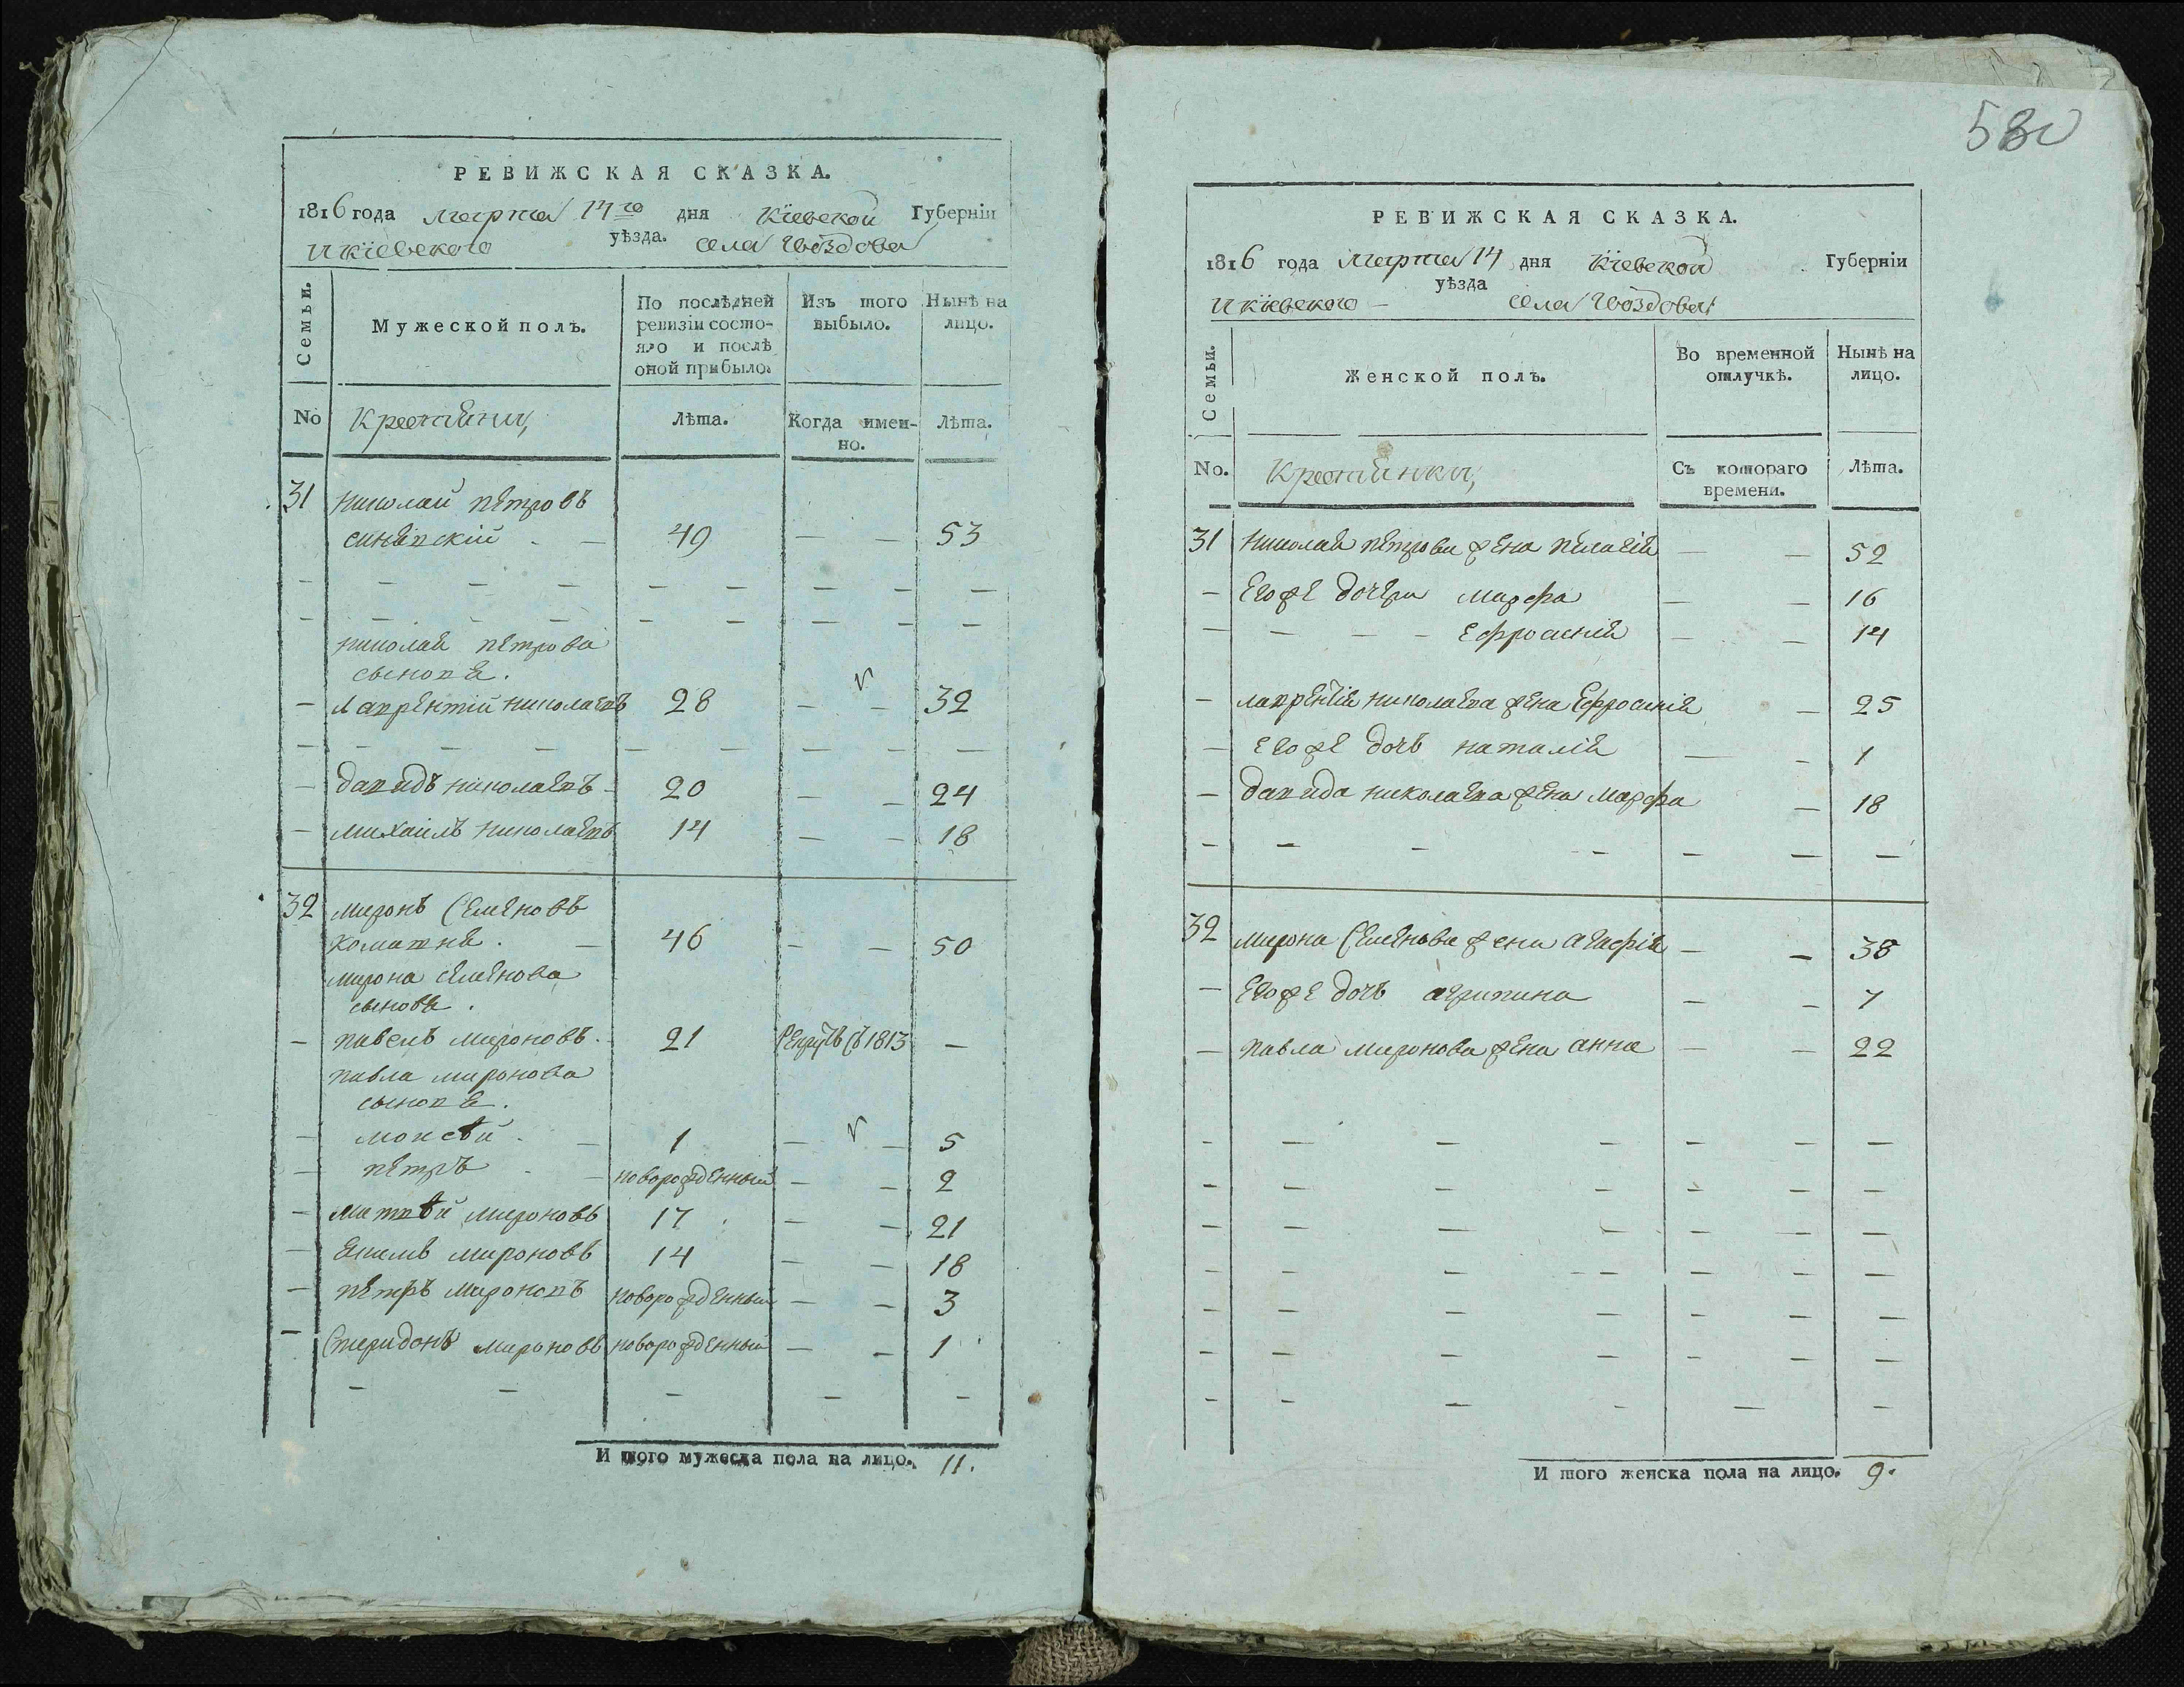 РЕВИЖСКАЯ СКАЗКА.
1816 года марта 14го дня Кіевской Губерніи
и кіевского уѣзда. села Гвоздова
Семьи. Мужеской полъ. По послѣдней ревизіи состояло и послѣ оной прибыло. Изъ того выбыло. Нынѣ на лицо.
No Крестяни, Лѣта. Когда именно. Лѣта.
31 Николай петровъ
49 — — 53
николая петрова
сыновя.
— Лаврентий николаевъ 28 — — 32
— давидъ николаевъ 20 — — 24
— михаилъ николаевъ 14 — — 18
32 миронъ Семеновъ
46 — — 50
мирона семенова
сыновя.
— павелъ мироновъ. 21 1813 —
павла миронова
сыновя.
— моисѣй. — 1 — — 5
— петръ — новорожденный — — 2
— матвѣй мироновъ 17 — — 21
— мироновъ 14 — — 18
— петръ мироновъ новорожденный — — 3
— Спиридонъ мироновъ новорожденный — — 1
И того мужеска пола на лицо. 11.
580
РЕВИЖСКАЯ СКАЗКА.
1816 года марта 14 дня Кіевской Губерніи
и кіевского — уѣзда села Гвоздова
Семьи. Женской полъ. Во временной отлучкѣ. Нынѣ на лицо.
No. Крестянки, Съ котораго времени. Лѣта.
31 Николая петрова жена пелагія — — 52
— Егоже дочери марфа — — 16
— — — — Ефросинія — — 14
— лаврентія николаева жена Ефросинія — 25
— Егоже дочь наталія — — 1
— давида николаева жена марфа — 18
32 мирона Семенова жена агафія — — 38
— Егоже дочь агрипина — — 7
— павла миронова жена анна — — 22
И того женска пола на лицо. 9.